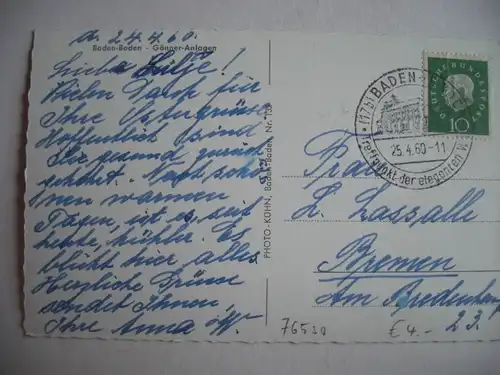 d. 24.4.60.
Baden-Baden - Gönner-Anlagen
Liebe Lilje!
Vielen Dank für
Ihre Ostergrüsse
Hoffentlich sind
Sie gesund zurück
gekehrt. Nach schö
nen warmen
Tagen, ist es, seit
heute, kühler. Es
blüht hier alles
Herzliche Grüsse
sendet Ihnen,
Ihre Anna
PHOTO-KÜHN, Baden-Baden, Nr. 153
(17b) BADEN-
25.4.60-11
Treffpunkt der eleganten
DEUTSCHE BUNDESPOST
10
Frau
L. Lassalle
Bremen
Am Bredenkamp
23
76530
€ 4.-